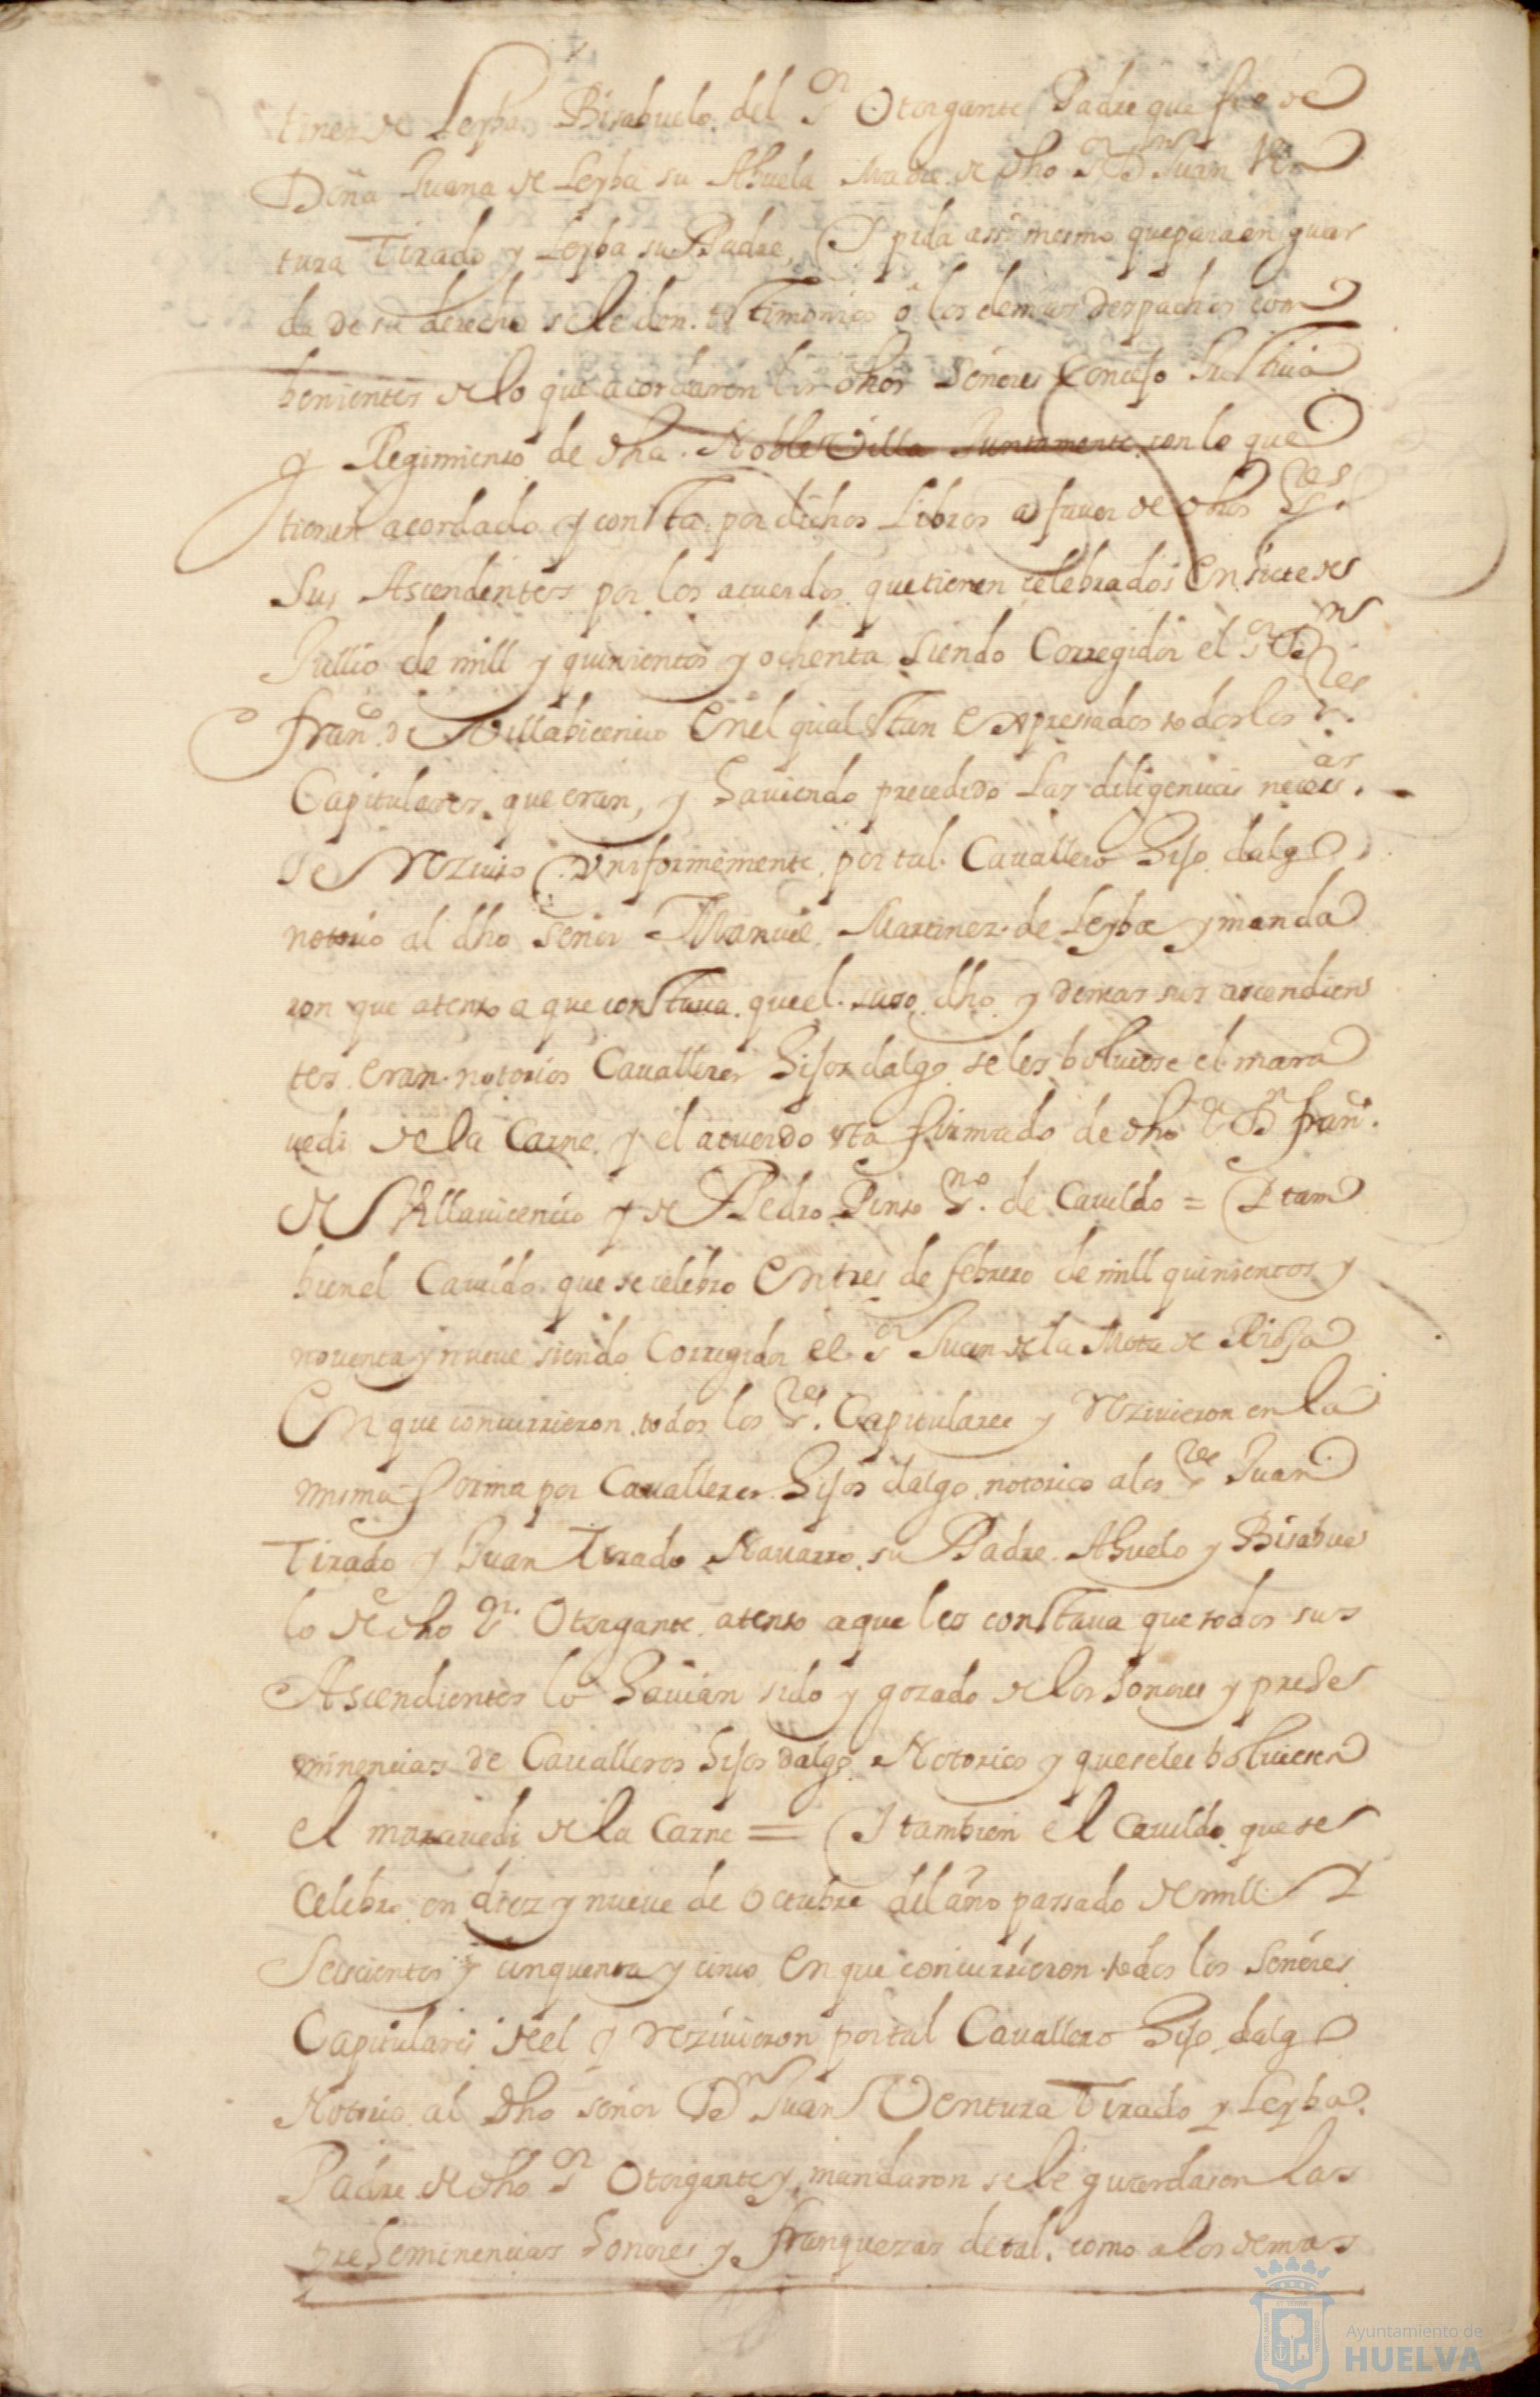 tinez de Leyba Bisabuelo del Sr Otorgante Padre que fue de
Doña Juana de Leyba su Abuela Madre de dho Sr Dn Juan Ven
tura Tirado y Leyba su Padre, Y pida assi mesmo que para en guar
da de su derecho se le den testimonios o los demas Despachos con
benientes de lo que acordaren los dhos Señores Concejo Justicia
y Regimiento de dha Noble Villa Juntamente con lo que
tienen acordado y consta por dichos Libros a fauor de dhos Sres
Sus Ascendentes por los acuerdos que tienen celebrados En siete de
Jullio de mill y quinientos y ochenta siendo Corregidor el Sr Dn
Franco de Villabicencio En el qual stan Expressados todos los Sres
Capitulares que eran, y hauiendo precedido las diligencias necesas.
se Rezuio Vniformemente por tal Cauallero hijo dalgo
notorio al dho señor Manuel Martinez de Leyba y manda
ron que atento a que constaua que el suso dho y demas sus ascendien
tes eran notorios Caualleros hijos dalgo se les boluiese el mara
uedi de la Carne y el acuerdo sta firmado de dho Sr Dn Franco
de Villauicencio y de Pedro Pinto Sno. de Cauildo = Y tam
bien el Cauildo que se celebro En tres de febrero de mill quinientos y
nouenta y nueue siendo Corregidor el Sr Juan de la Mota de
En que concurrieron todos los Sres. Capitulares y Reziuieron en la
misma forma por Caualleros hijos dalgo notorios a los Sres Juan
Tirado y Juan Tirado Nauarro su Padre Abuelo y Bisabue
lo de dho Sr Otorgante atento a que les constaua que todos sus
Ascendientes lo hauian sido y gozado de los honores y prehe
minencias de Caualleros hijos dalgo Notorios y que se les boluiesen
el marauedi de la Carne = Y tambien el Cauildo que se
Celebro en diez y nueue de Octubre del año passado de mill
Seiscientos y cinquenta y cinco En que concurrieron todos los señores
Capitulares de el y Reziuieron por tal Cauallero hijo dalgo
Notorio al dho señor Dn Juan Ventura Tirado y Leyba
Padre de dho Sr Otorgante y mandaron se le guardasen las
preheminencias honores y franquezas de tal como a los demas
Ayuntamiento de
HUELVA